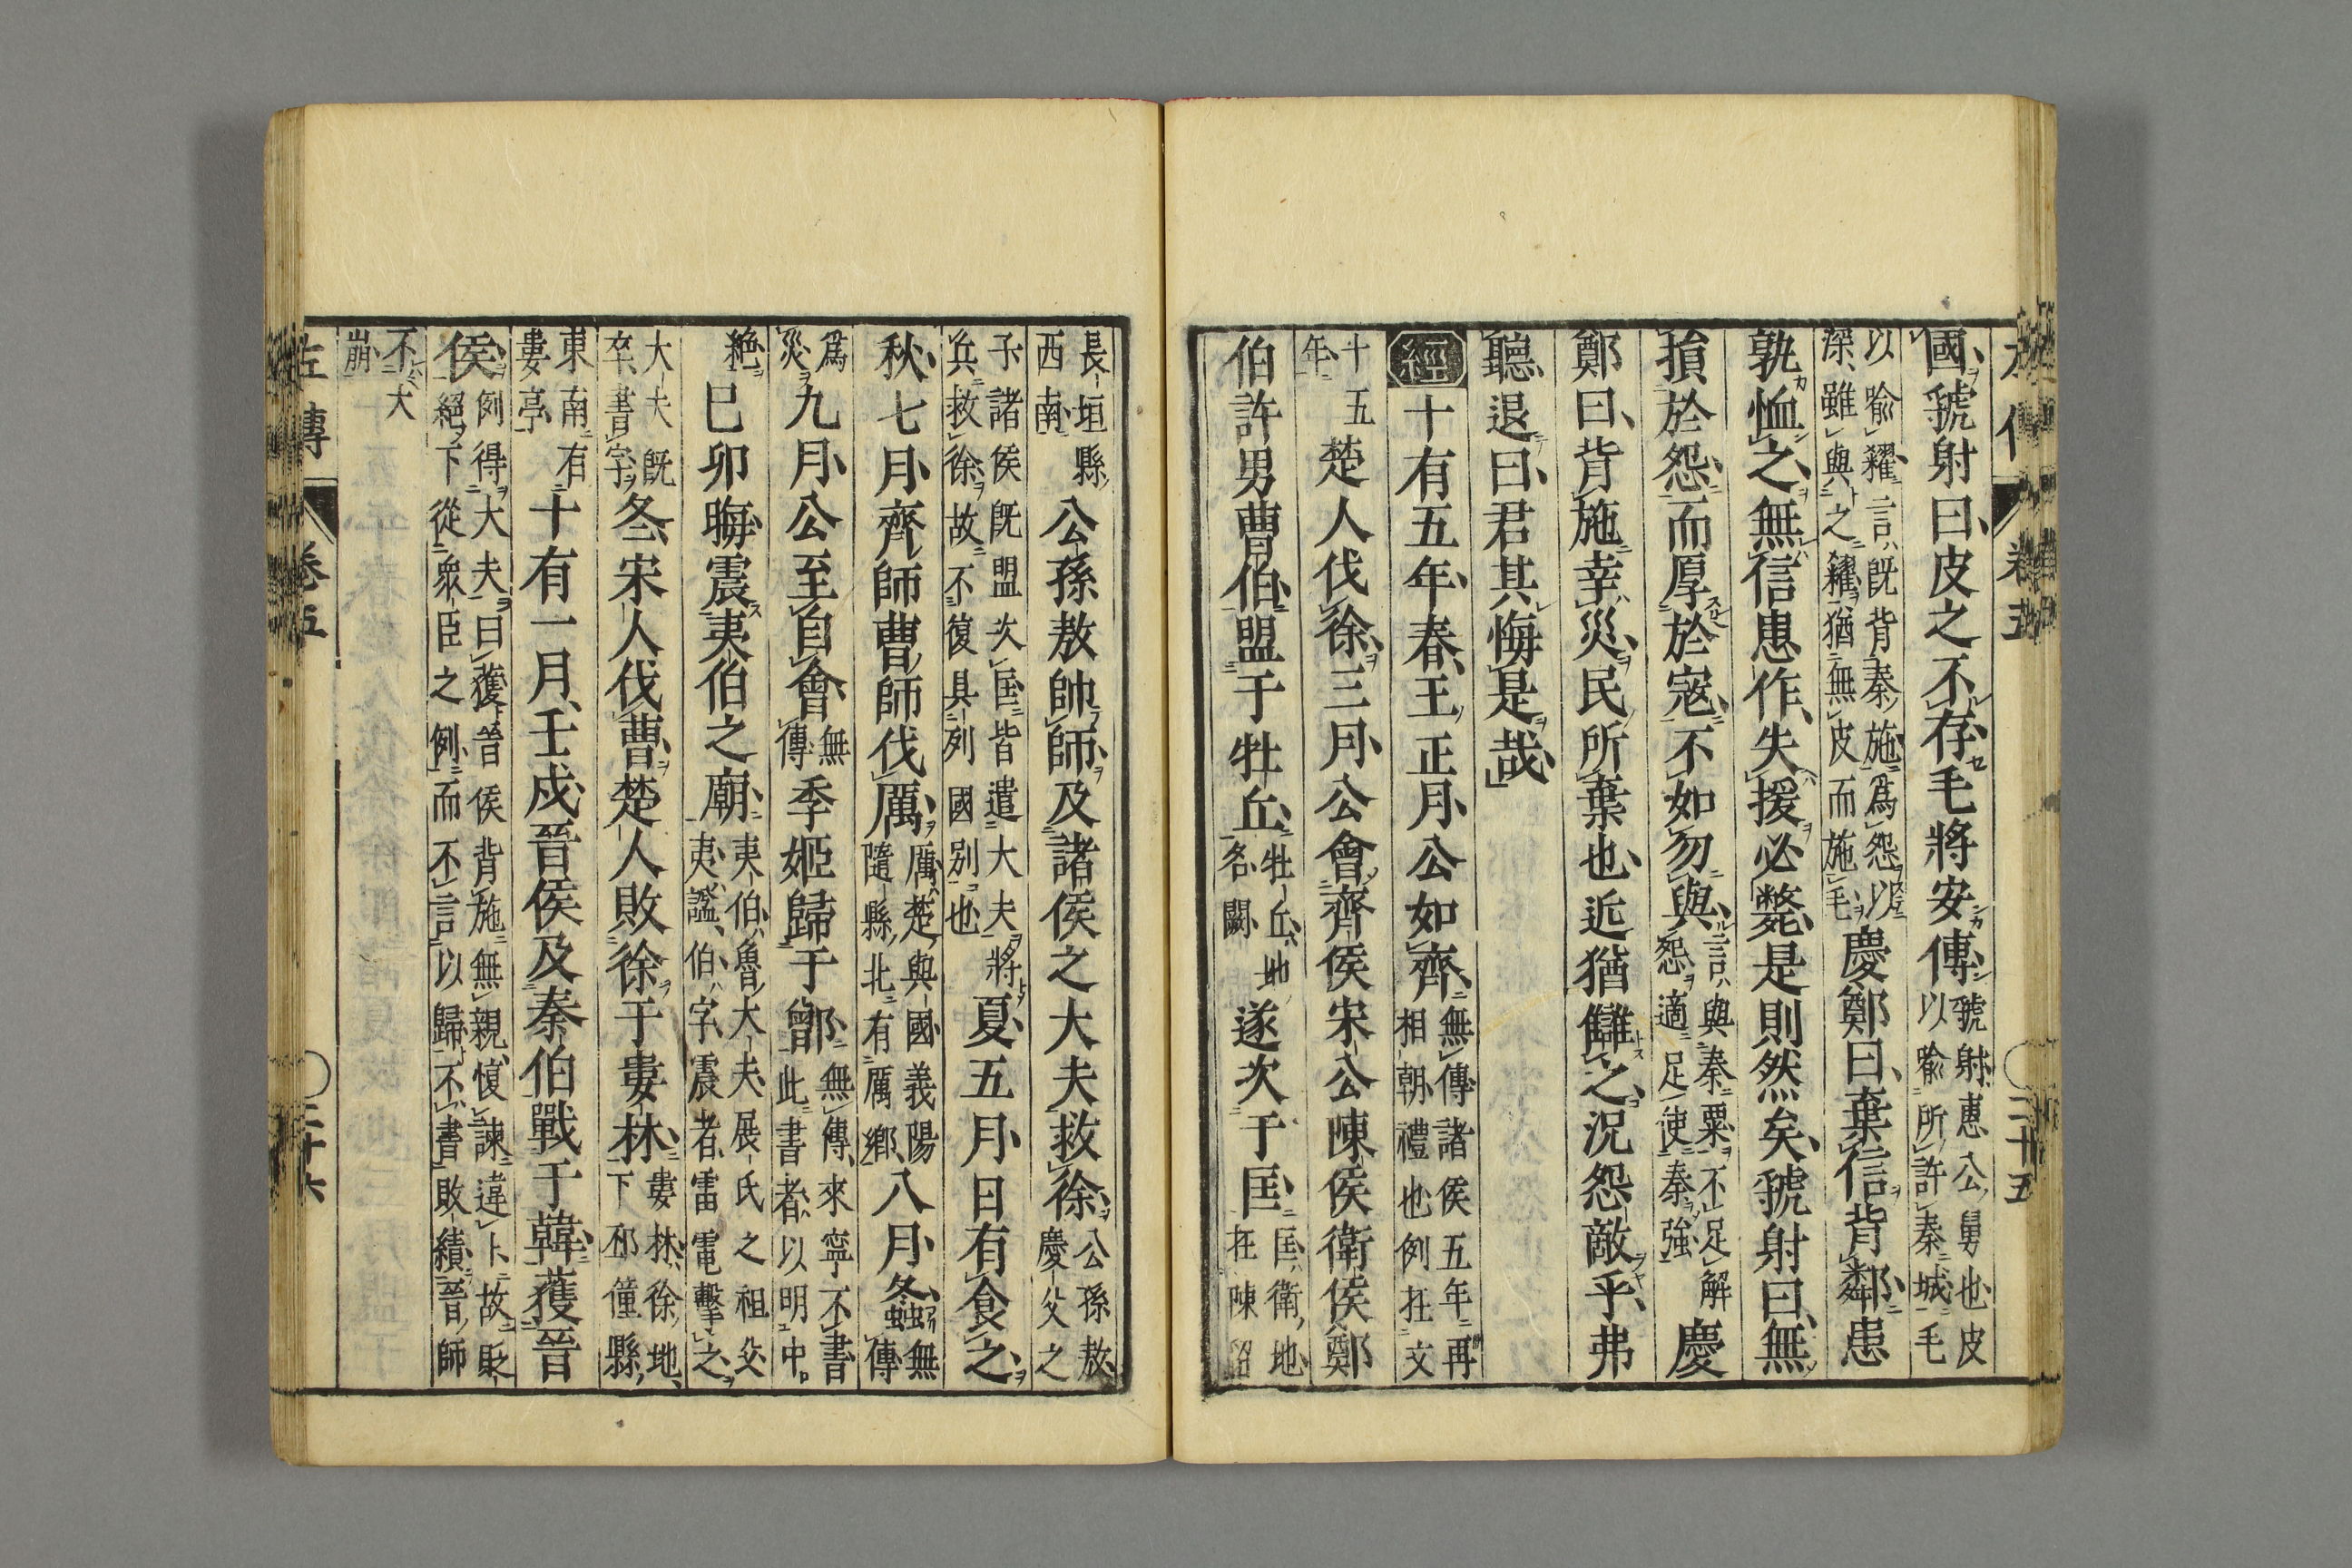 左傳 卷五 二十五
國虢射曰皮之不存毛將安傅虢射惠公舅也皮以喻所許秦城毛
以喻糴言既背秦施爲怨以深雖與之糴猶無皮而施毛慶鄭曰棄信背鄰患
孰恤之無信患作失援必斃是則然矣虢射曰無
損於怨而厚於寇不如勿與言與秦粟不足解怨適足使秦強慶
鄭曰背施幸災民所棄也近猶讎之況怨敵乎弗
聽退曰君其悔是哉
經十有五年春王正月公如齊無傳諸侯五年再相朝禮也例在文
十五年楚人伐徐三月公會齊侯宋公陳侯衛侯鄭
伯許男曹伯盟于牡丘牡丘地名闕遂次于匡匡衛地在陳留
長垣縣西南公孫敖帥師及諸侯之大夫救徐公孫敖慶父之
子諸侯既盟次匡皆遣大夫將兵救徐故不復具列國別也夏五月日有食之
秋七月齊師曹師伐厲厲楚與國義陽隨縣北有厲鄉八月螽無傳
爲災九月公至自會無傳季姬歸于鄫無傳來寧不書此書者以明中
絶己卯晦震夷伯之廟夷伯魯大夫展氏之祖父夷謚伯字震者雷電擊之
大夫既卒書字冬宋人伐曹楚人敗徐于婁林婁林徐地下邳僮縣
東南有婁亭十有一月壬戌晉侯及秦伯戰于韓獲晉
侯例得大夫曰獲晉侯背施無親愎諫違卜故貶絕下從衆臣之例而不言以歸不書敗績晉師
不大崩
左傳 卷五 二十六